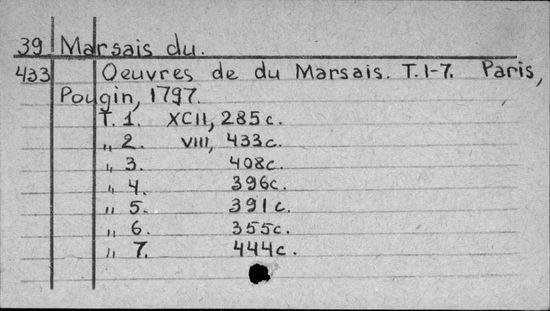 39 Marsais du.
433 Oeuvres de du Marsais. T. 1-7. Paris,
Pougin, 1797.
T. 1. XCII, 285c.
„ 2. VIII, 433c.
„ 3. 408c.
„ 4. 396c.
„ 5. 391c.
„ 6. 355c.
„ 7. 444c.